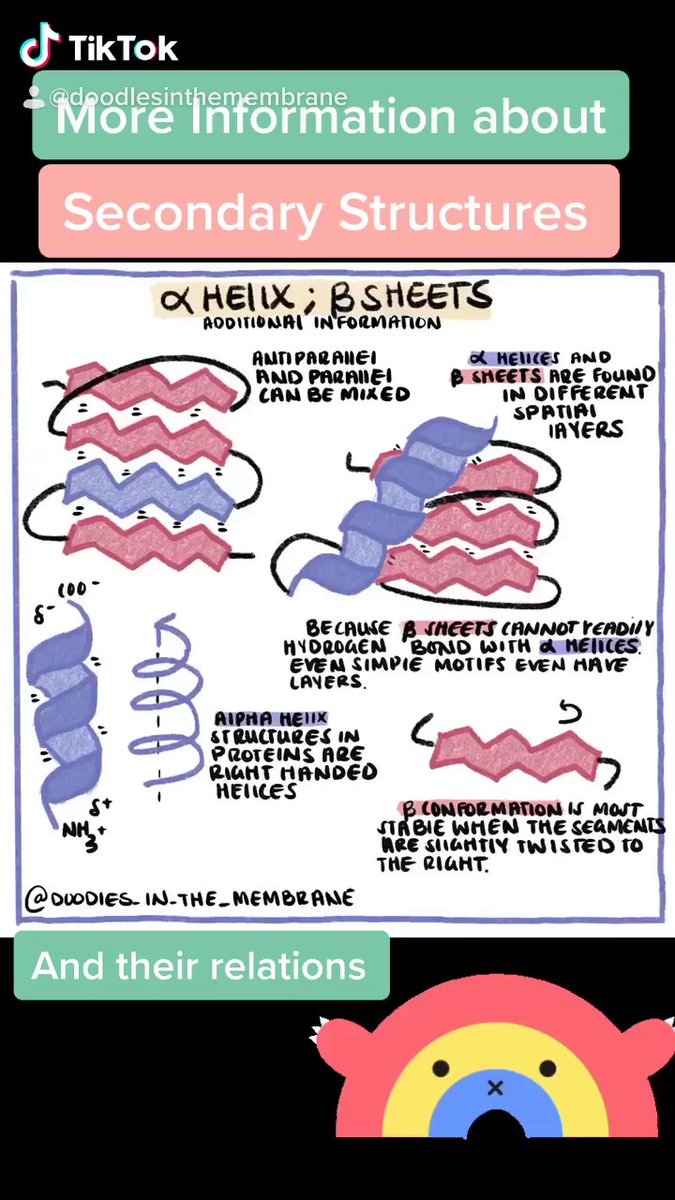 TikTok
@doodlesinthemembrane
More Information about
Secondary Structures
α HELIX ; β SHEETS
ADDITIONAL INFORMATION
ANTIPARALLEL
AND PARALLEL
CAN BE MIXED
α HELICES AND
β SHEETS ARE FOUND
IN DIFFERENT
SPATIAL
LAYERS
COO⁻
δ⁻
δ+
NH₃+
BECAUSE β SHEETS CANNOT READILY
HYDROGEN BOND WITH α HELICES.
EVEN SIMPLE MOTIFS EVEN HAVE
LAYERS.
ALPHA HELIX
STRUCTURES IN
PROTEINS ARE
RIGHT HANDED
HELICES
β CONFORMATION IS MOST
STABLE WHEN THE SEGMENTS
ARE SLIGHTLY TWISTED TO
THE RIGHT.
@DOODLES_IN_THE_MEMBRANE
And their relations